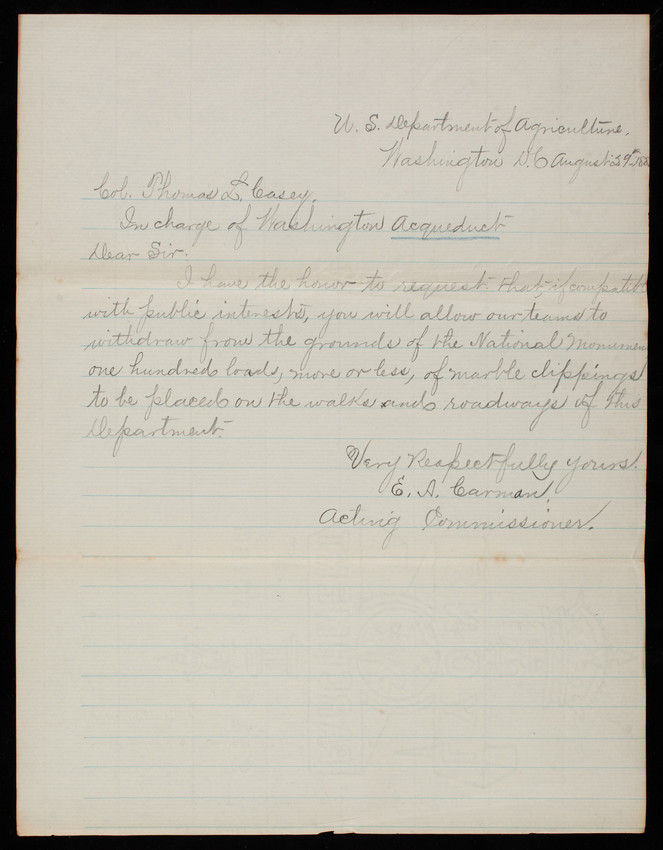 U. S. Department of Agriculture,
Washington D.C August
Col. Thomas L. Casey.
In charge of Washington Acqueduct
Dear Sir:
I have the honor to request that, if compatible
with public interests, you will allow our teams to
withdraw from the grounds of the National Monument
one hundred loads, more or less, of marble clippings
to be placed on the walks and roadways of this
Department.
Very Respectfully yours.
E. A. Carman,
Acting Commissioner.